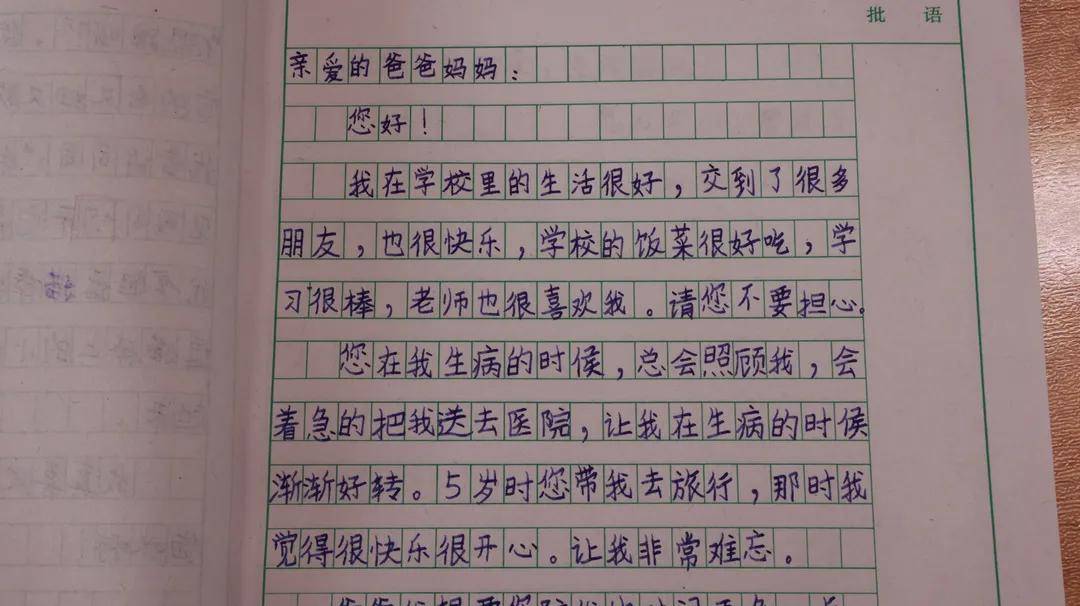 批 语
亲爱的爸爸妈妈：
您好！
我在学校里的生活很好，交到了很多
朋友，也很快乐，学校的饭菜很好吃，学
习很棒，老师也很喜欢我。请您不要担心。
您在我生病的时候，总会照顾我，会
着急的把我送去医院，让我在生病的时候
渐渐好转。5岁时您带我去旅行，那时我
觉得很快乐很开心。让我非常难忘。